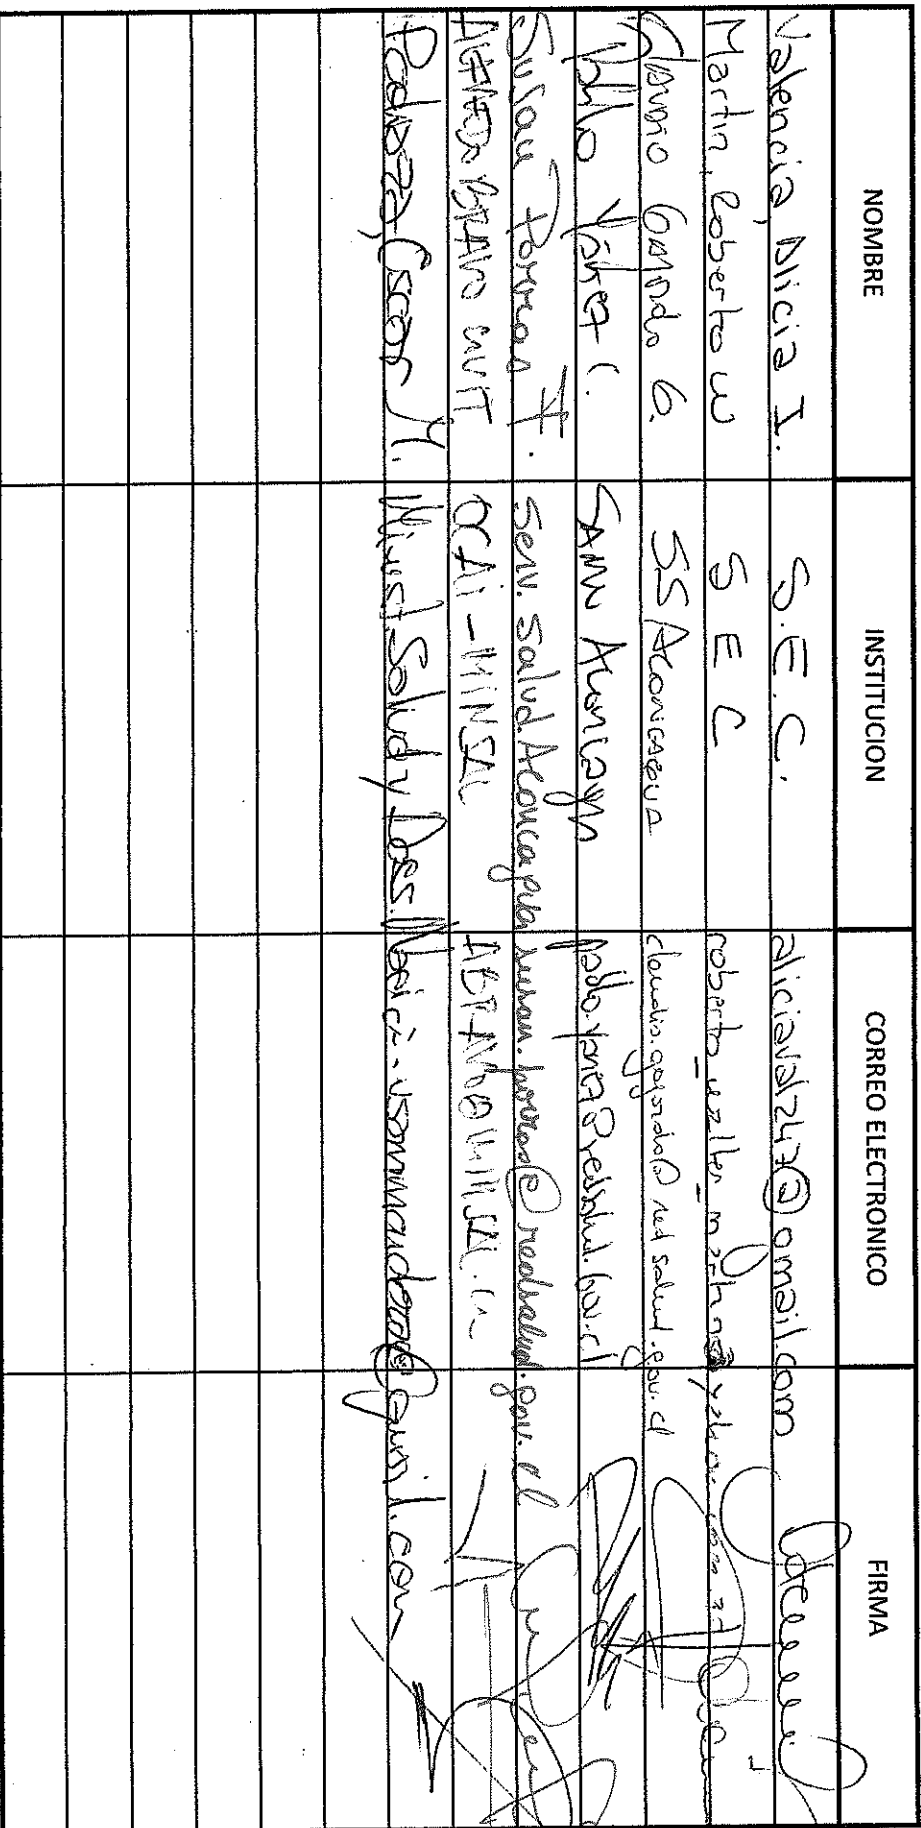 NOMBRE INSTITUCION CORREO ELECTRONICO FIRMA
Valencia, Alicia I. S.E.C. aliciaval247@gmail.com
Martin, Roberto W S E C roberto_walter_martin@yahoo.com.ar
Claudio Gajardo G. SS Aconcagua claudio.gajardo@redsalud.gov.cl
Pablo Yáñez C. SAMU Aconcagua pablo.yanez@redsalud.gov.cl
Susan Porras F. Serv. Salud Aconcagua susan.porras@redsalud.gov.cl
BRAVO OCAI-MINSAL ABRAVO@MINSAL.CL
Pedroza, Oscar M. Minist. Salud y Des.